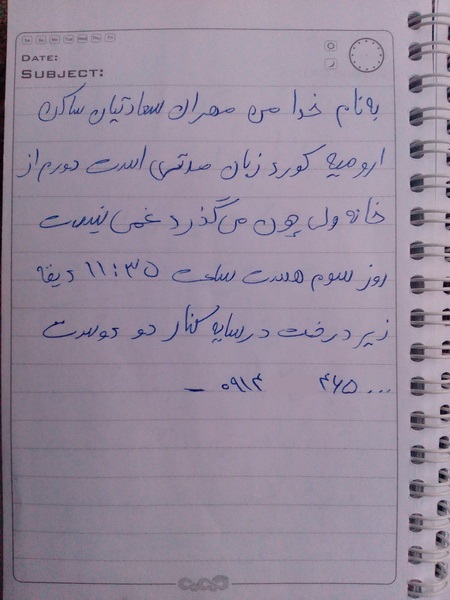 DATE:
SUBJECT:
به نام خدا من مهران سعادتیان ساکن
ارومیه کورد زبان مدتی است دورم از
خانه ولی چون می گذرد غمی نیست
روز سوم هست ساعت ۱۱:۳۵ دیقه
زیر درخت در سایه کنار دو دوست
۰۹۱۴ ۴۶۵...